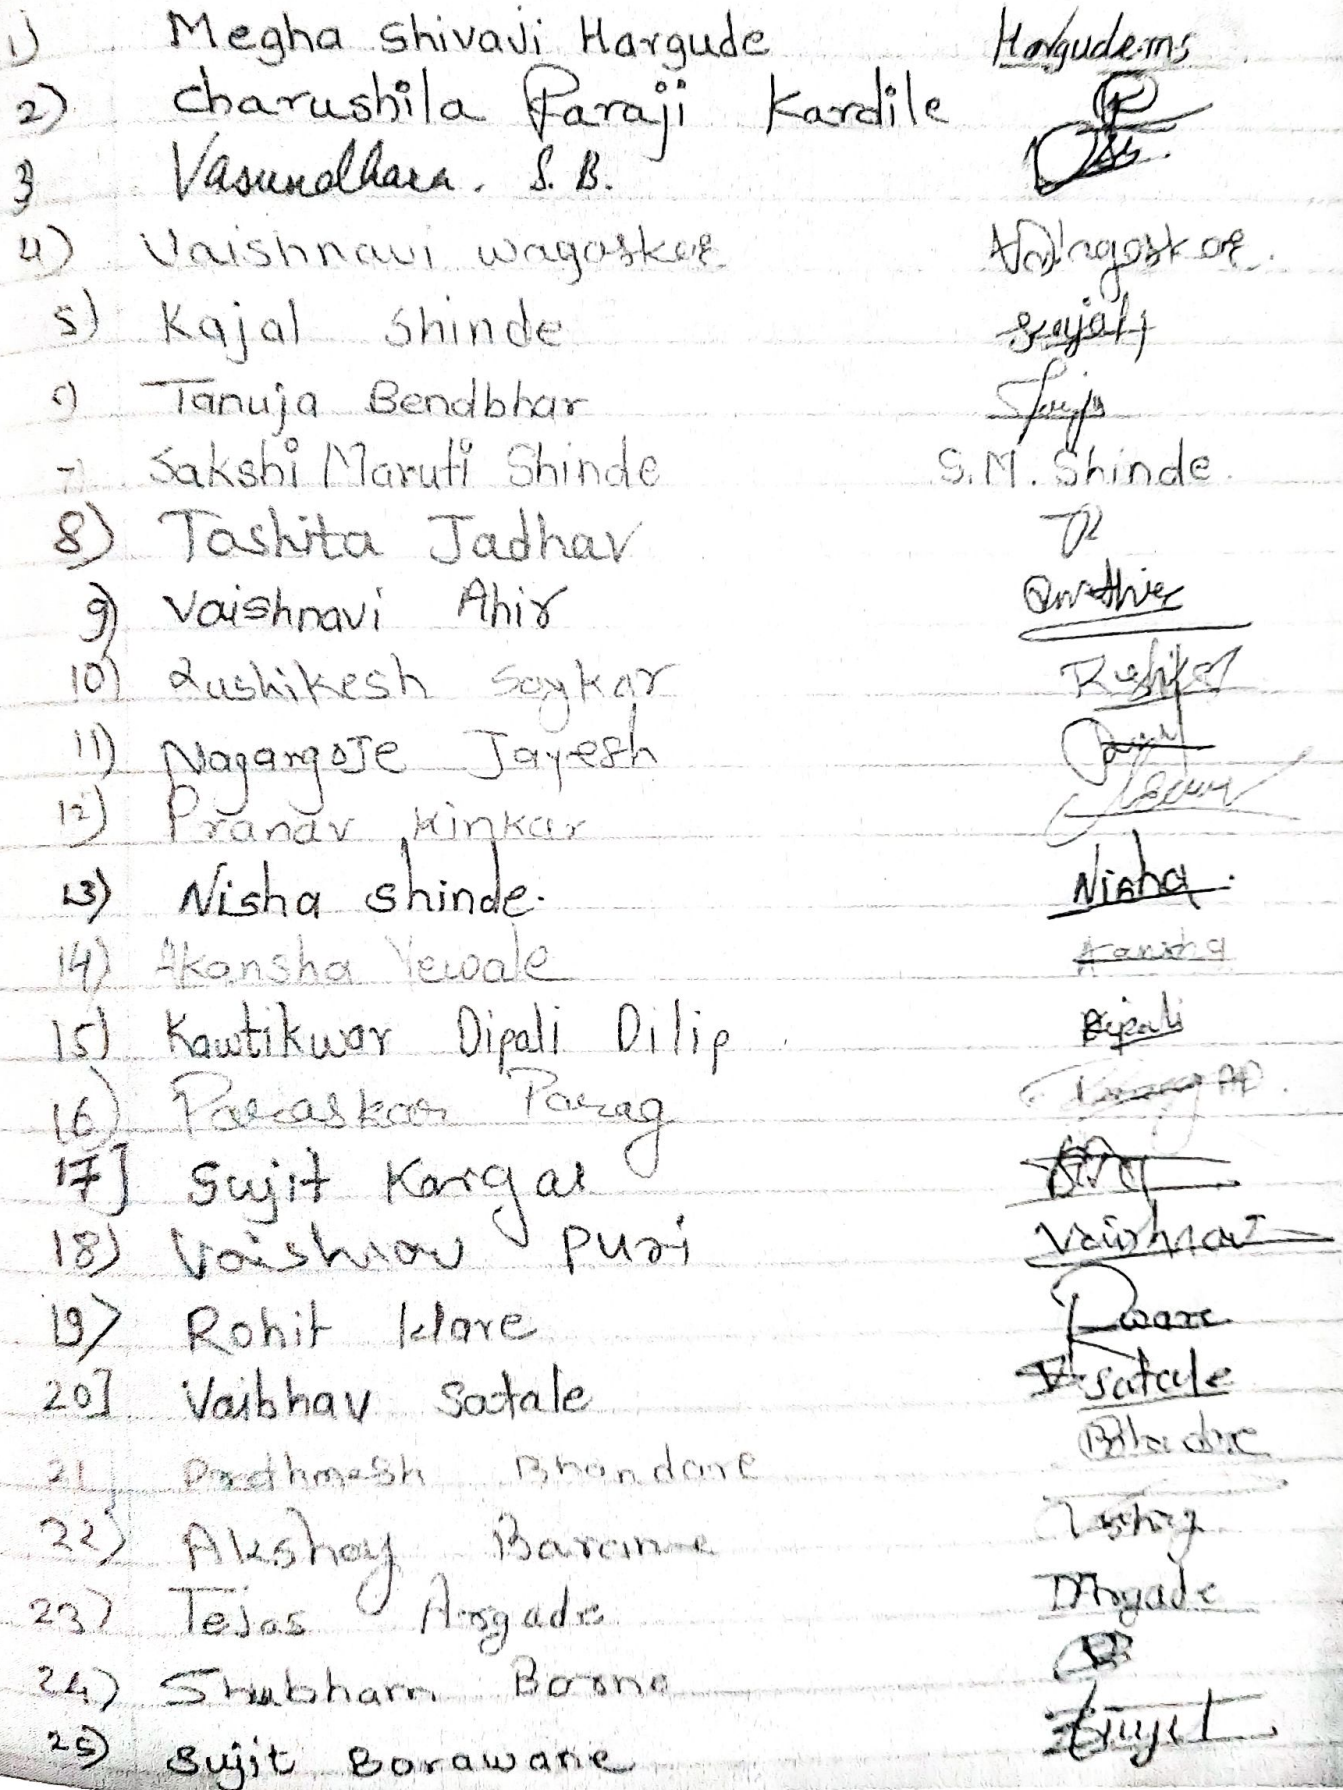 1) Megha Shivavi Hargude Hargude.ms
2) Charushila Paraji Kardile
3 Vasundhara. S. B.
4) Vaishnavi wagaskar
5) Kajal Shinde
Tanuja Bendbhar
7) Sakshi Maruti Shinde S.M. Shinde.
8) Tashita Jadhav
9) Vaishnavi Ahir
10) Rushikesh Saykar
11) Nagargoje Jayesh
12) Pranav Kinkar
13) Nisha shinde. Nisha.
14) Akansha Yewale
15) Kawtikwar Dipali Dilip Dipali
16) Paraskar Parag
17] Sujit Kargal
18) Vaishnav puri Vaishnav
19) Rohit Ware Rware
20] Vaibhav Satale V.satale
21] Prathmesh Bhandare
22) Akshay Baramne
23) Tejas Argade
24) Shubham Borne
25) Sujit Borawane Sujit